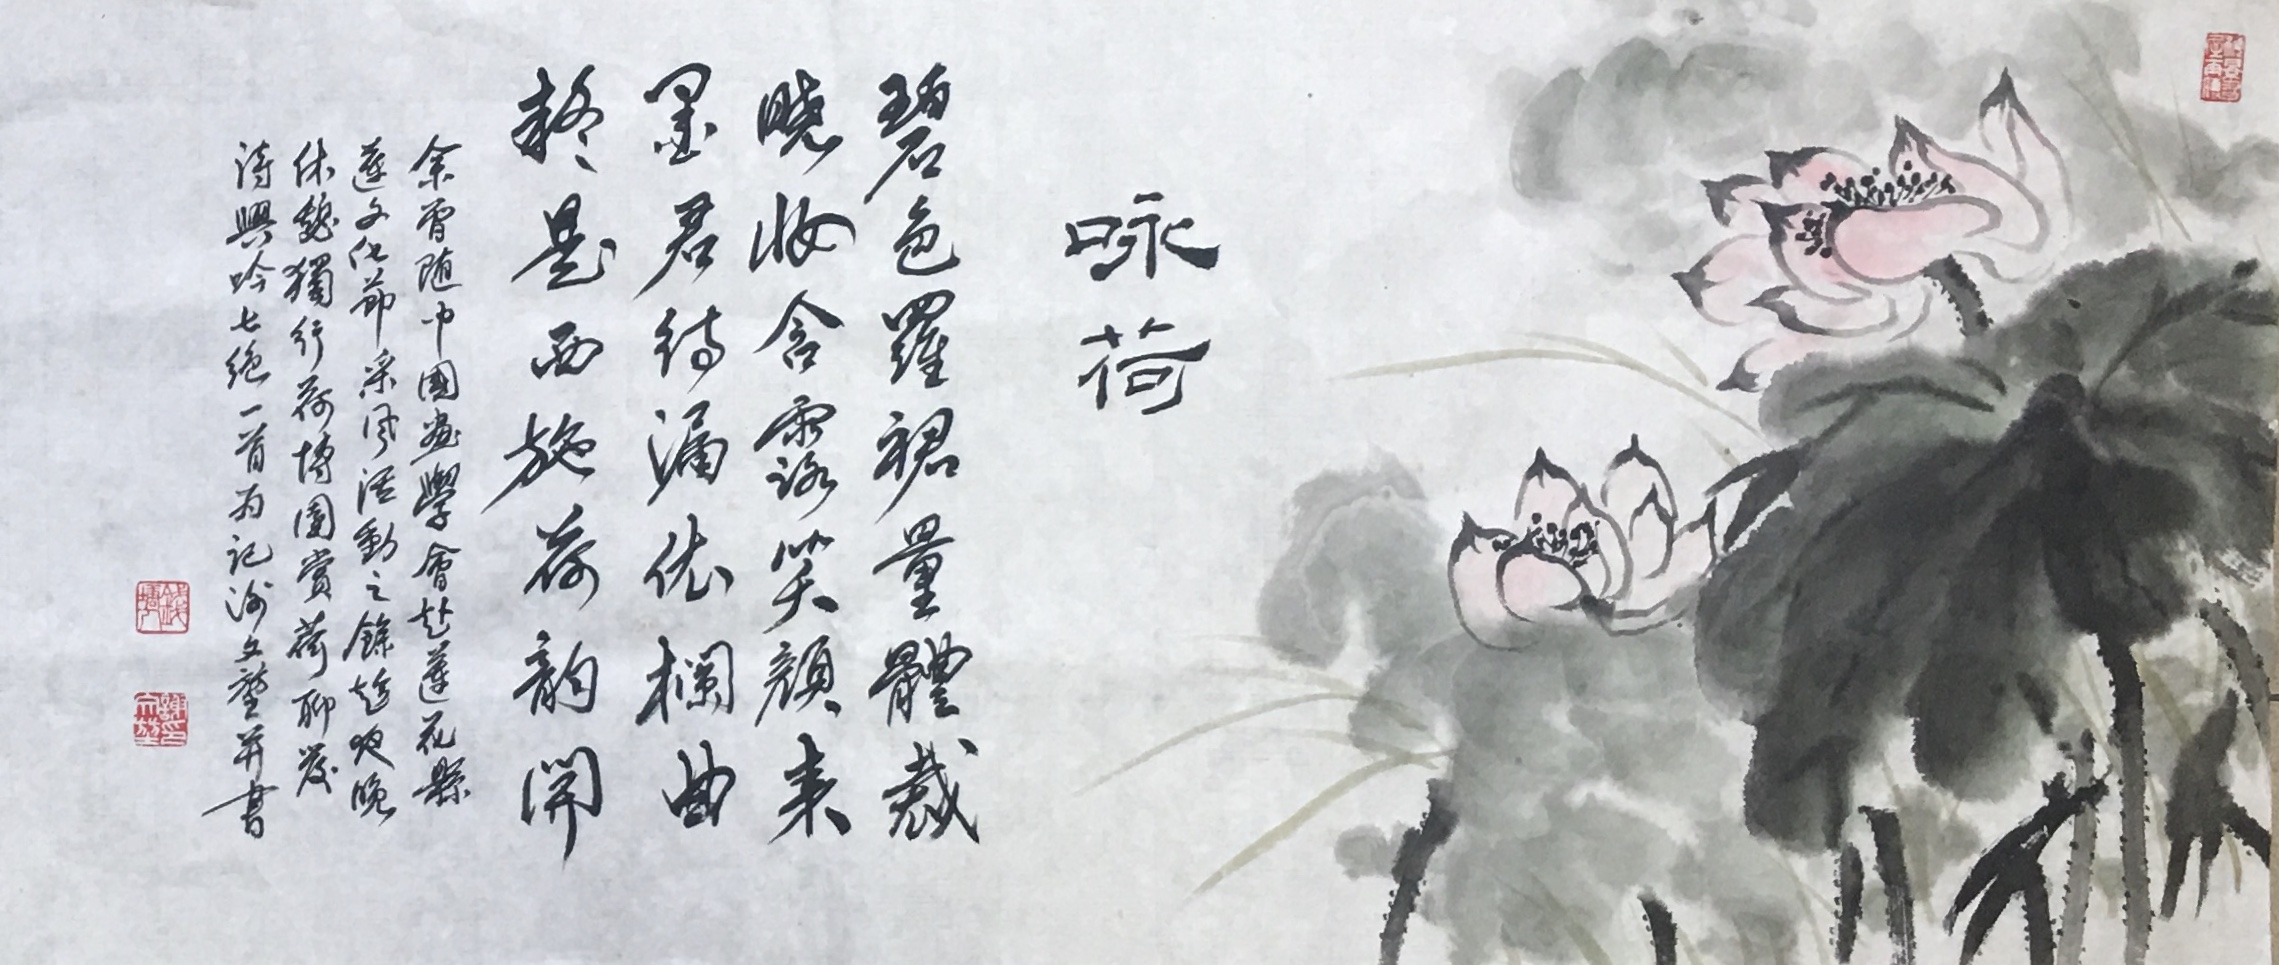 咏荷
碧色羅裙量體裁
曉妝含露笑顔来
墨君待漏依欄曲
疑是西施荷韵開
余曾随中國畫學會赴蓮花縣
蓮文化節采风活動之餘趁夜晚
休憩獨行荷博園賞荷聊发
詩興吟七绝一首为記 文 并書